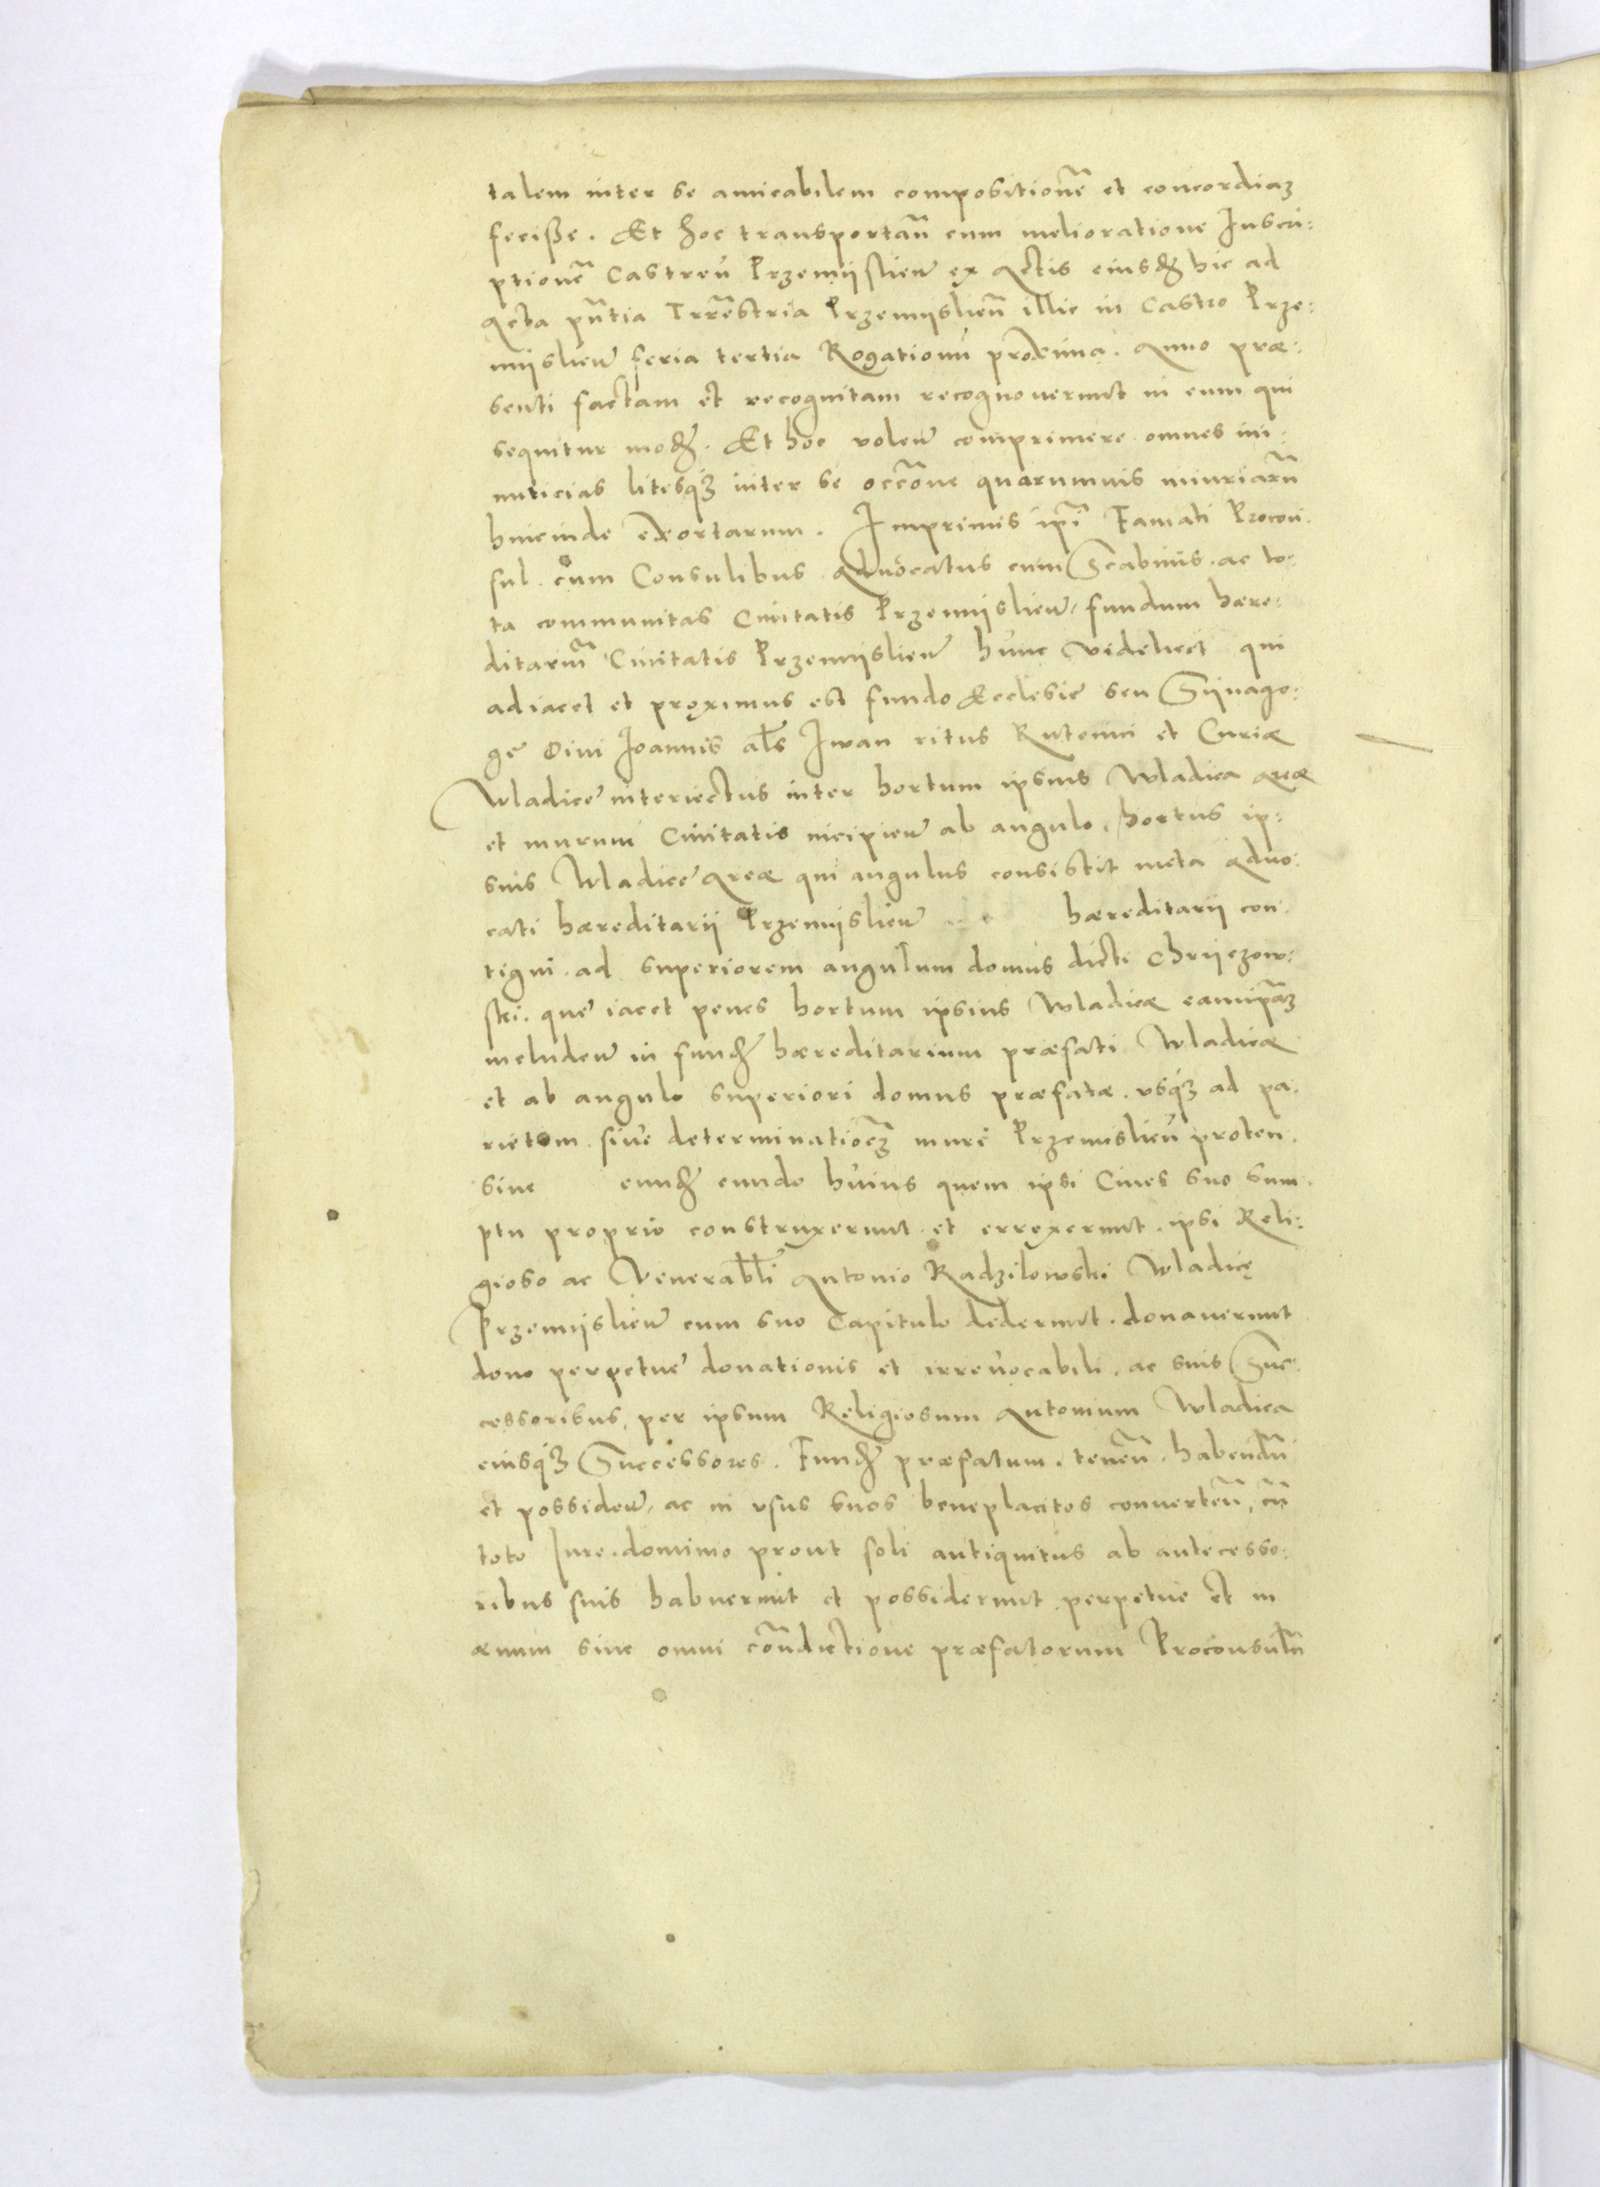 talem inter se amicabilem compositionē et concordiaʒ
feciße. Et hoc transportan̄ cum melioratione Inscri:
ptionē Castren̄ Przemijslien̄ ex Actis eiusdʒ hic ad
Acta pn̄tia Trr̄estria Przemijslien̄ illic in Castro Prze:
mijslien̄ feria tertia Rogationū proxima. Anno præ:
senti factam et recognitam recognouerunt in eum qui
sequitur modʒ. Et hoc volen̄ comprimere omnes ini:
micicias litesqʒ inter se occōne quarumuis iniuriarū
hincinde exortarum. Imprimis ip̄i Famati Procon:
sul cum Consulibus Aduocatus cum Scabinis ac to:
ta communitas Ciuitatis Przemijslien̄ fundum hære:
ditariū Ciuitatis Przemijslien̄ hunc videlicet qui
adiacet et proximus est fundo Ecclesie seu Sijnago:
ge Diui Joannis als Iwan ritus Rutenici et Curiæ
Wladice interiectus inter hortum ipsius Wladica aræ
et murum Ciuitatis incipien̄ ab angulo hortus ip:
sius Wladice Areæ qui angulus consistit meta Aduo:
cati hæreditarij Przemijslien̄ hæreditarii con:
tigui ad superiorem angulum domus dicti Chrijczow:
ski. que iacet penes hortum ipsius Wladicæ eamip̄aʒ
includen̄ in fundʒ hæreditarium præfati Wladicæ
et ab angulo superiori domus præfatæ vsqʒ ad pa:
rietem siue determinatiōeʒ muri Przemislien̄ proten.
siue eundʒ eundo huius quem ipsi Ciues suo sum:
ptu proprio construxerunt et errexerunt ipsi Reli:
gioso ac Venerabli Antonio Radzilowski Wladicę
Przemijslien̄ cum suo Capitulo dederunt. donaverunt
dono perpetue donationis et irreuocabili. ac suis Suc:
cessoribus, per ipsum Religiosum Antonium Wladica
eiusqʒ Successores. Fundʒ præfatum. tenen̄. habendū
et possiden̄ ac in vsus suos beneplacitos conuerten̄, cū
toto Jure. dominio prout soli antiquitus ab antecesso:
ribus suis habuerunt et possiderunt perpetue et in
æuum sine omni cōndictione præfatorum Proconsulū